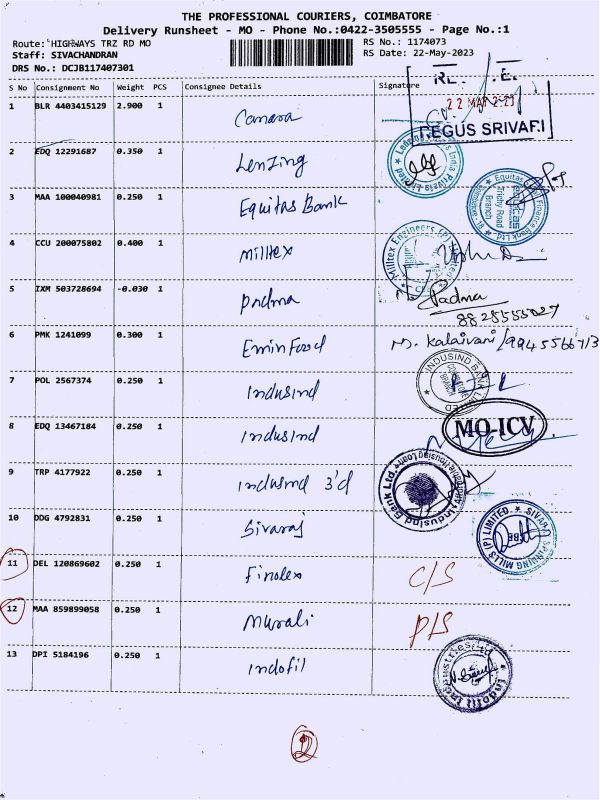 THE PROFESSIONAL COURIERS, COIMBATORE
Delivery Runsheet - MO - Phone No.:0422-3505555 - Page No.:1
Route: HIGHWAYS TRZ RD MO RS No.: 1174073
Staff: SIVACHANDRAN RS Date: 22-May-2023
DRS No.: DCJB117407301
S No Consignment No Weight PCS Consignee Details Signature
1 BLR 4403415129 2.900 1 Canara
REGUS SRIVARI
2 EDQ 12291687 0.350 1 Lenzing
3 MAA 100040981 0.250 1 Equitas Bank
4 CCU 200075802 0.400 1 Milltex
Milltex Engineers (P) Limited
5 IXM 503728694 -0.030 1 Padma Padma
8828555027
6 PMK 1241099 0.300 1 Emin Food Ms. Kalaivani
7 POL 2567374 0.250 1 Indusind
INDUSIND BANK LIMITED
8 EDQ 13467184 0.250 1 Indusind
MO-ICV
9 TRP 4177922 0.250 1 Indusind 3'd
Indusind Bank Ltd.
10 DDG 4792831 0.250 1 Sivaraj
SIVARAJ SPINNING MILLS (P) LIMITED.
11 DEL 120869602 0.250 1 Finolex C/S
12 MAA 859899058 0.250 1 Murali P/S
13 DPI 5184196 0.250 1 Indofil
Indofil Industries Ltd
2